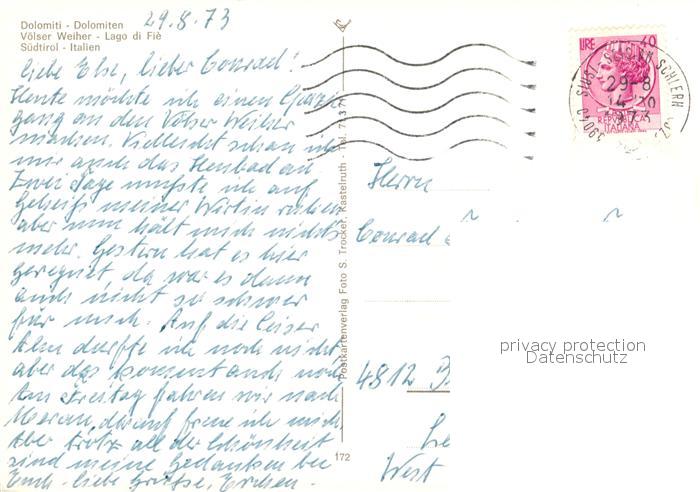 29.8.73
Dolomiti - Dolomiten
Völser Weiher - Lago di Fiè
Südtirol - Italien
Liebe Else, lieber Conrad!
Heute möchte ich einen Spazier
gang an den Völser Weiher
machen. Vielleicht schau ich
mir auch das Heubad an.
Zwei Tage mußte ich auf
Geheiß meiner Wirtin ruhen
aber nun hält mich nichts
mehr. Gestern hat es hier
geregnet, da war es dann
auch nicht so schwer
für mich. Auf die Seiser
Alm durfte ich noch nicht
aber das kommt auch noch
Am Freitag fahren wir nach
Meran, darauf freue ich mich
Aber trotz all der Schönheit
sind meine Gedanken bei
Euch - liebe Grüße,
Postkartenverlag Foto S. Trocker, Kastelruth - Tel. 71
172
LIRE 40
SIUSI SEIS AM SCHLERN
39040
-29-8
1973
REPUBBLICA
ITALIANA
Herrn
Conrad
4812 B
West
privacy protection
Datenschutz